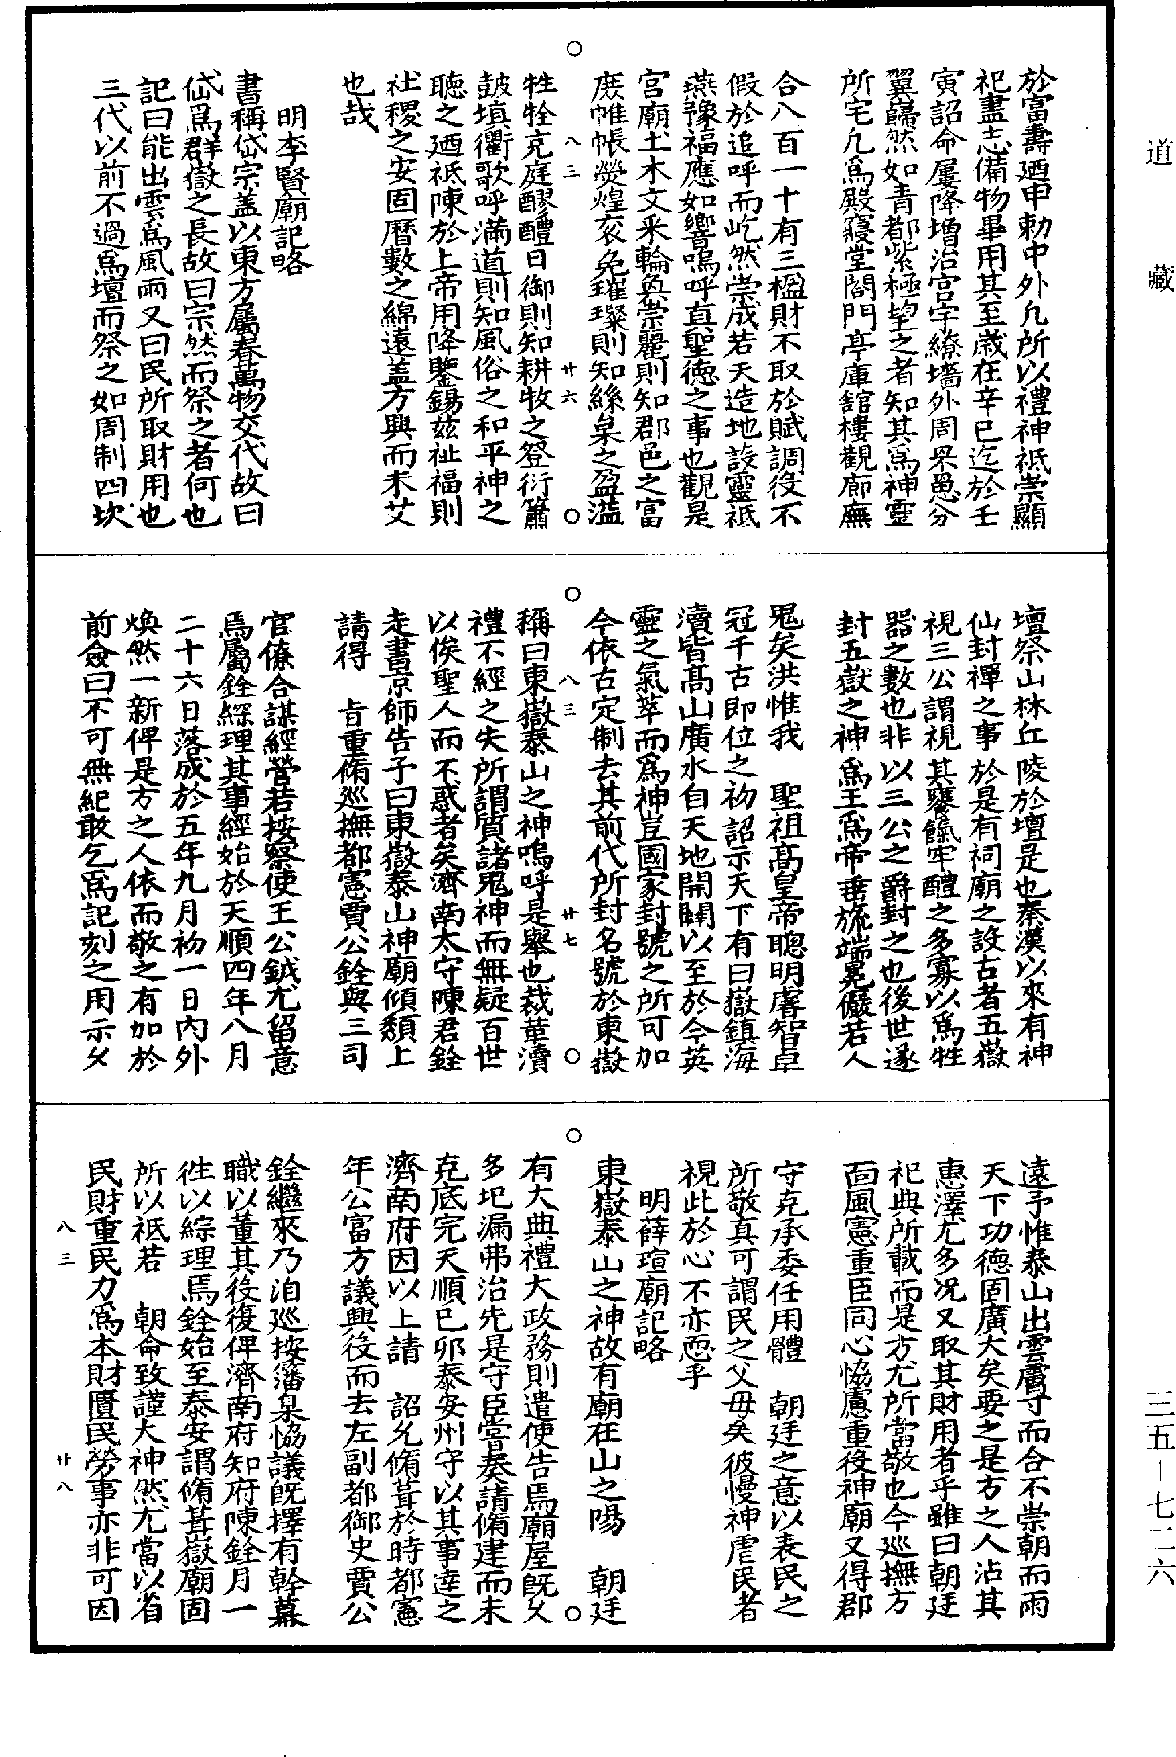 道藏
三五—七二六
於富壽廼申勑中外凡所以禮神祇崇顯
祀盡志備物畢用其至歲在辛巳迄於壬
寅詔命屢降增治宮宇繚墻外周罘罳分
翼巋然如青都紫極望之者知其爲神靈
所宅凡爲殿寢堂閤門亭庫舘樓觀廊廡
合八百一十有三楹財不取於賦調役不
假於追呼而屹然崇成若天造地設靈祇
燕豫福應如響嗚呼直聖德之事也觀是
宮廟土木文采輪奐崇麗則知郡邑之富
庶帷帳熒煌衮冕璀璨則知絲枲之盈溢
八三 廿六
牲牷充庭醪醴日御則知耕牧之登衍簫
鼓塡衢歌呼滿道則知風俗之和平神之
聽之廼祗陳於上帝用降鑒錫茲祉福則
社稷之安固曆數之綿遠盖方興而未艾
也哉
明李賢廟記略
書稱岱宗盖以東方屬春萬物交代故曰
岱爲群嶽之長故曰宗然而祭之者何也
記曰能出雲爲風雨又曰民所取財用也
三代以前不過爲壇而祭之如周制四坎
壇祭山林丘陵於壇是也秦漢以來有神
仙封禪之事於是有祠廟之設古者五嶽
視三公謂視其饔餼牢醴之多寡以爲牲
器之數也非以三公之爵封之也後世遂
封五嶽之神爲王爲帝垂旒端冕儼若人
鬼矣洪惟我　聖祖高皇帝聰明睿智卓
冠千古即位之初詔示天下有曰嶽鎮海
瀆皆高山廣水自天地開闢以至於今英
靈之氣萃而爲神豈國家封號之所可加
今依古定制去其前代所封名號於東嶽
八三 廿七
稱曰東嶽泰山之神嗚呼是舉也裁革瀆
禮不經之失所謂質諸鬼神而無疑百世
以俟聖人而不惑者矣濟南太守陳君銓
走書京師告予曰東嶽泰山神廟傾頹上
請得　旨重脩巡撫都憲賈公銓與三司
官僚合謀經營若按察使王公鉞尤留意
焉屬銓綜理其事經始於天順四年八月
二十六日落成於五年九月初一日內外
煥然一新俾是方之人依而敬之有加於
前僉曰不可無紀敢乞爲記刻之用示久
遠予惟泰山出雲膚寸而合不崇朝而雨
天下功德固廣大矣要之是方之人沾其
惠澤尤多况又取其財用者乎雖曰朝廷
祀典所載而是方尤所當敬也今巡撫方
面風憲重臣同心恊慮重後神廟又得郡
守克承委任用體　朝廷之意以表民之
所敬真可謂民之父母矣彼慢神虐民者
視此於心不亦恧乎
明薛瑄廟記略
東嶽泰山之神故有廟在山之陽　朝廷
有大典禮大政務則遣使告焉廟屋旣久
多圮漏弗治先是守臣嘗奏請脩建而未
克底完天順己卯泰安州守以其事逹之
濟南府因以上請　詔允脩葺於時都憲
年公富方議興役而去左副都御史賈公
銓繼來乃洎巡按藩臬恊議旣擇有幹幕
職以董其役復俾濟南府知府陳銓月一
徃以綜理焉銓始至泰安謂脩葺嶽廟固
所以祗若　朝命致謹大神然尤當以省
民財重民力爲本財匱民勞事亦非可因
八三 廿八